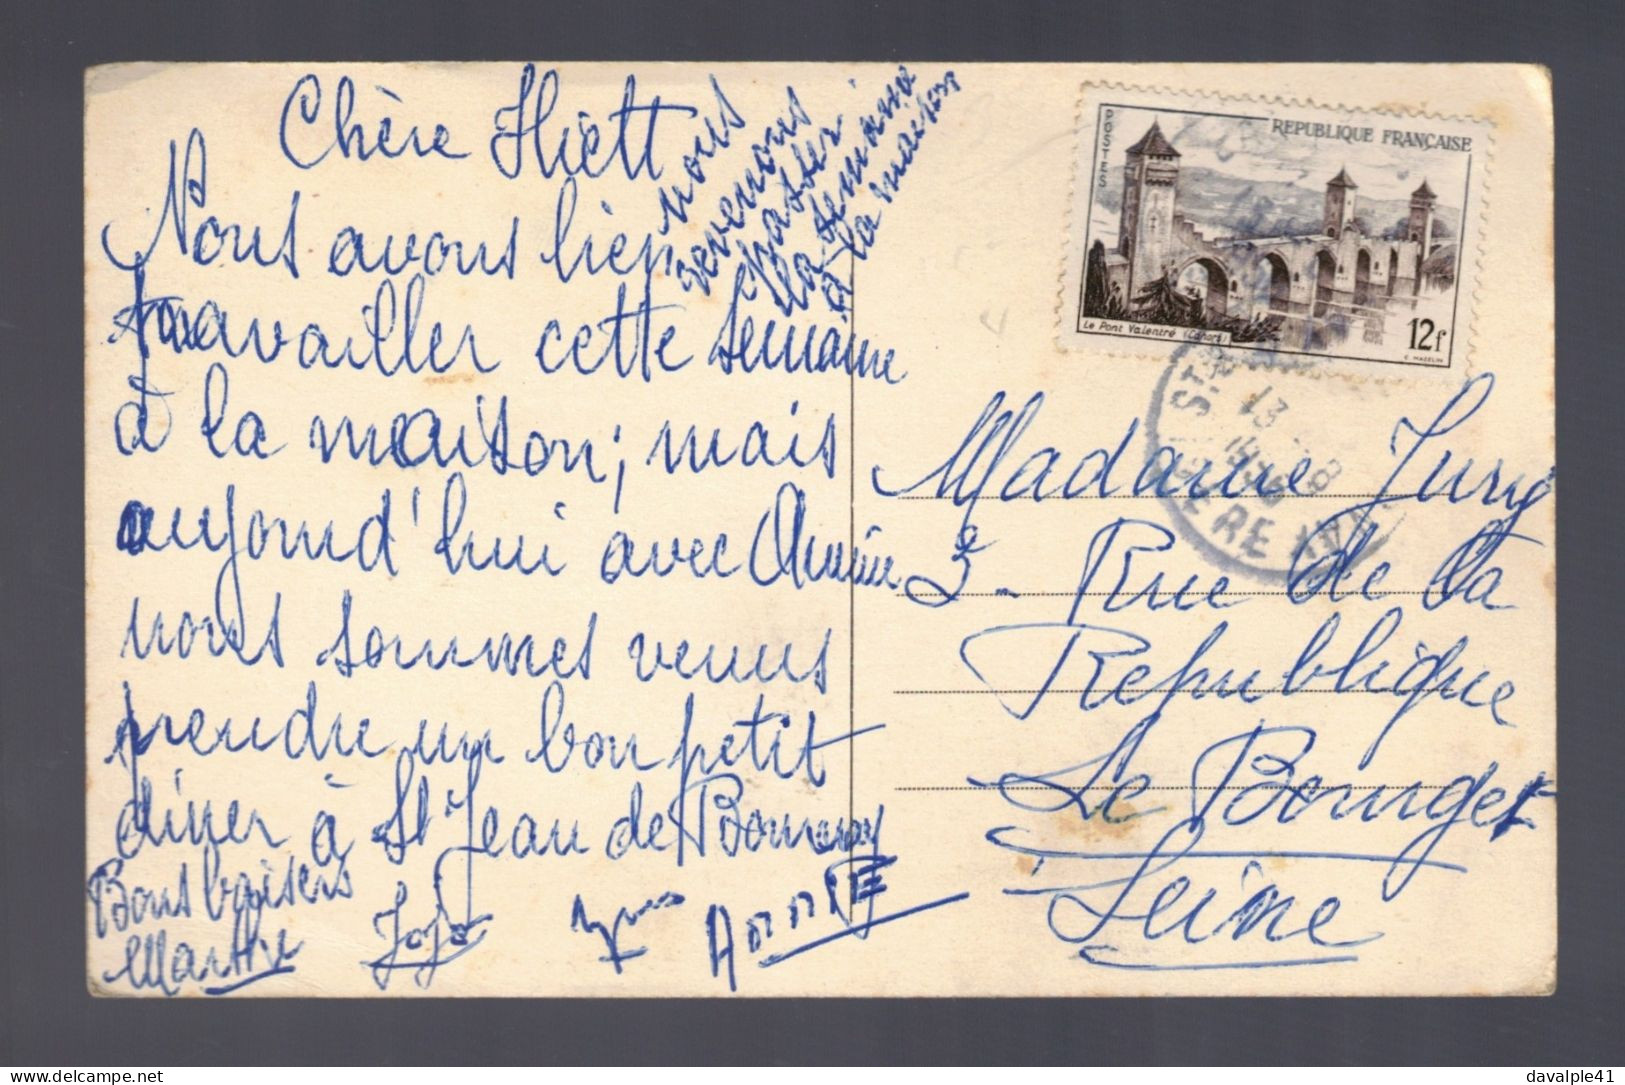 Chère
Nous avons bien
travailler cette semaine
à la maison; mais
aujourd'hui avec
nous sommes venus
prendre un bon petit
diner à St Jean de Bournay
Bons baisers
Marthe
Jojo
Annie
nous
revenons
passer
la semaine
à la maison
POSTES
REPUBLIQUE FRANÇAISE
Le Pont Valentré (Cahors)
12f
C. MAZELIN
ST
13
ERE
Madame Jury
3 - Rue de la
Republique
Le Bourget
Seine
delcampe.net
davalple41